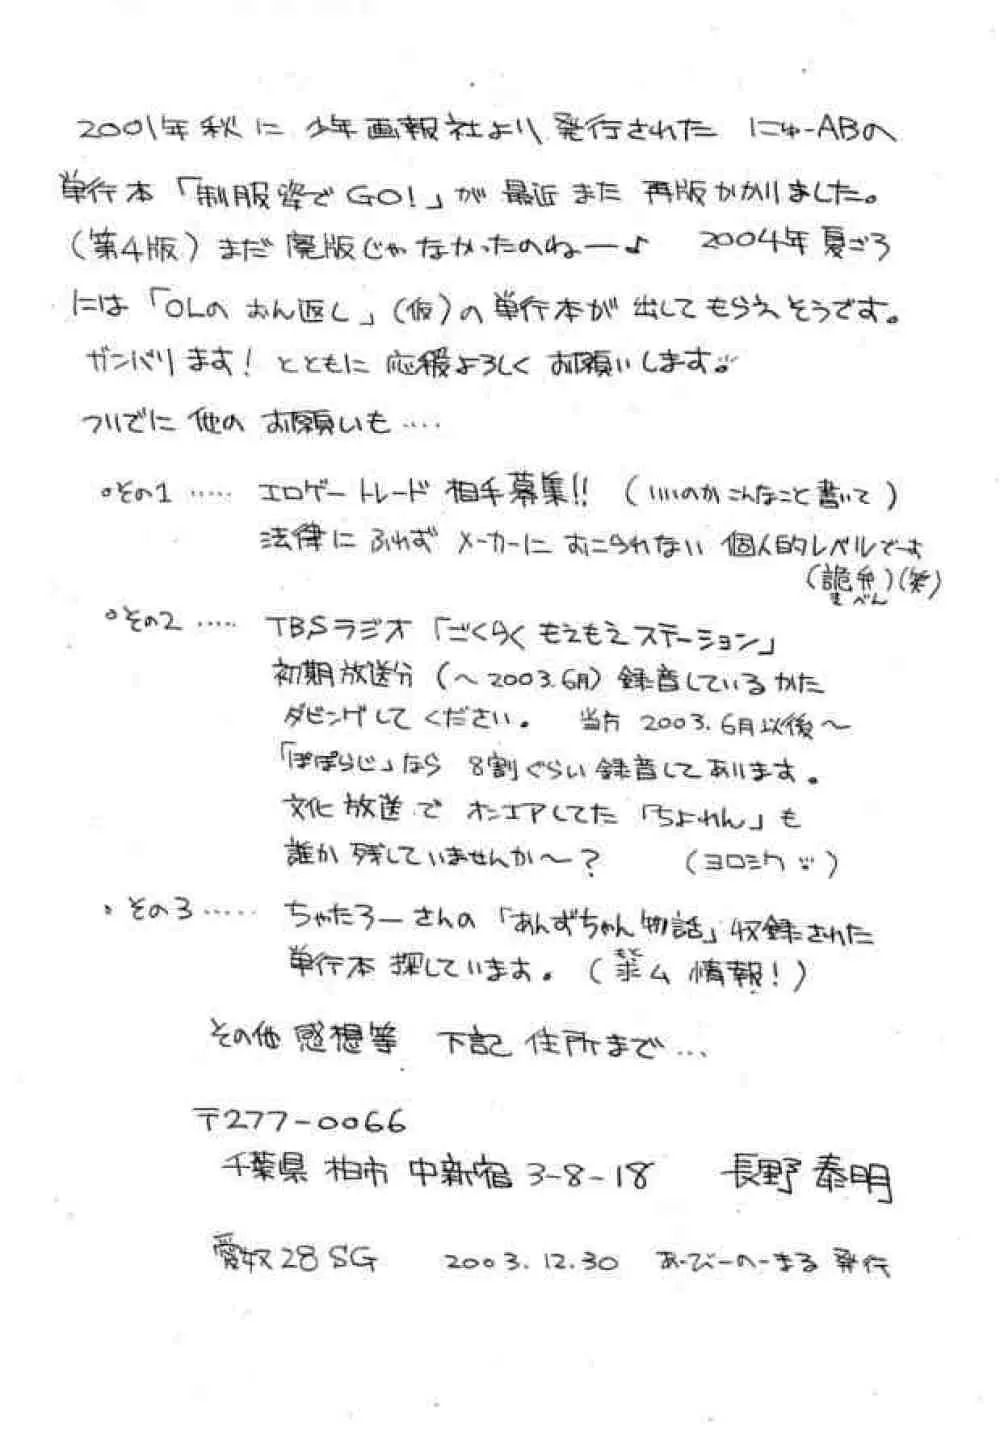 2001年 秋に 少年画報社より 発行された にゅーABの
単行本「制服姿でGO!」が 最近 また 再版かかりました。
(第4版) まだ 廃版じゃなかったのねー♪ 2004年 夏ごろ
には「OLの おん返し」(仮)の 単行本が 出して もらえそうです。
ガンバリます! とともに 応援よろしく お願いします。
ついでに 他の お願いも‥‥
°その1 ‥‥‥ エロゲートレード 相手募集!! (いいのか こんなこと 書いて)
法律に ふれず メーカーに おこられない 個人的レベルでーす
(詭弁)(笑)
きべん
°その2 ‥‥‥ TBSラジオ「ごくらく もえもえステーション」
初期放送分 (〜2003.6月) 録音しているかた
ダビングして ください。 当方 2003.6月以後〜
「ぽぽらじ」なら 8割ぐらい 録音して あります。
文化放送で オンエアしてた「ちよれん」も
誰か 残していませんか〜? (ヨロシク)
°その3 ‥‥‥ ちゃたろーさんの「あんずちゃん物語」収録された
単行本 探しています。 (求ム 情報!)
もと
その他 感想等 下記 住所まで…
〒277-0066
千葉県 柏市 中新宿 3-8-18 長野 泰明
愛奴28SG 2003.12.30 あーびーのーまる 発行